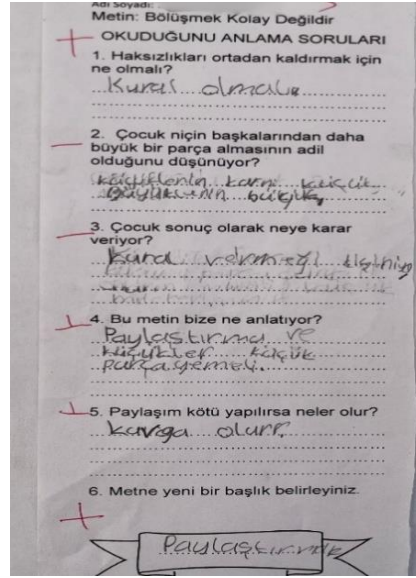 Adı Soyadı:
Metin: Bölüşmek Kolay Değildir
OKUDUĞUNU ANLAMA SORULARI
1. Haksızlıkları ortadan kaldırmak için
ne olmalı?
Kural olmalı.
2. Çocuk niçin başkalarından daha
büyük bir parça almasının adil
olduğunu düşünüyor?
karnı küçük
büyük
3. Çocuk sonuç olarak neye karar
veriyor?
Kural vermeği
4. Bu metin bize ne anlatıyor?
Paylaştırma ve
küçükler küçük
parça yemeli.
5. Paylaşım kötü yapılırsa neler olur?
kavga olurr.
6. Metne yeni bir başlık belirleyiniz.
Paylaştırmak